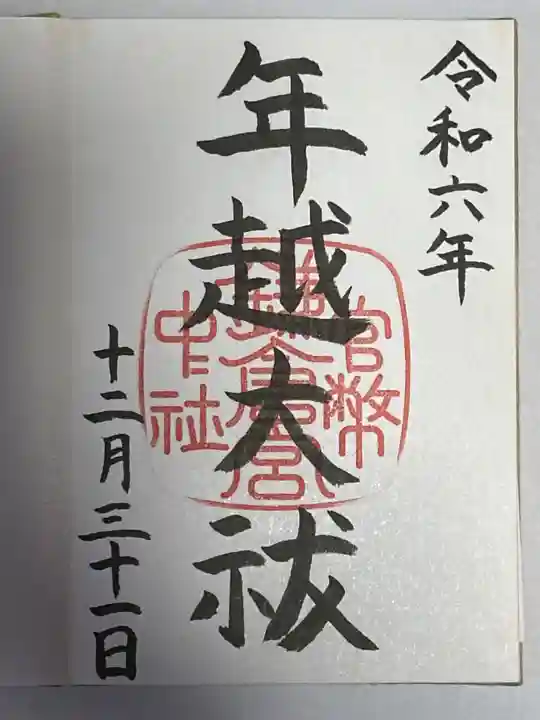 令和六年
年越大祓
十二月三十一日
官幣
鎌倉宮
中社